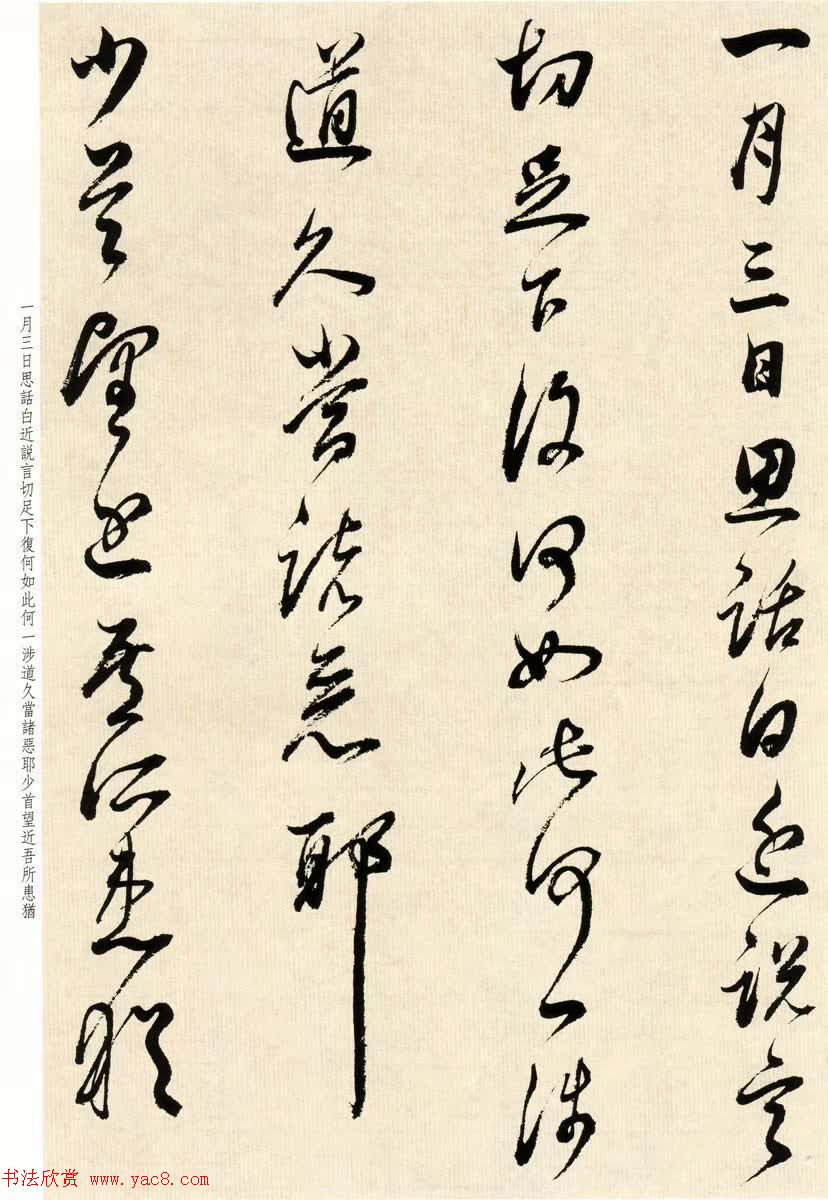 一月三日思話白近説言
切足下復何如此何一涉
道久當諸惡耶
少首望近吾所患猶
一月三日思話白近説言切足下復何如此何一涉道久當諸惡耶少首望近吾所患猶
书法欣赏 www.yac8.com